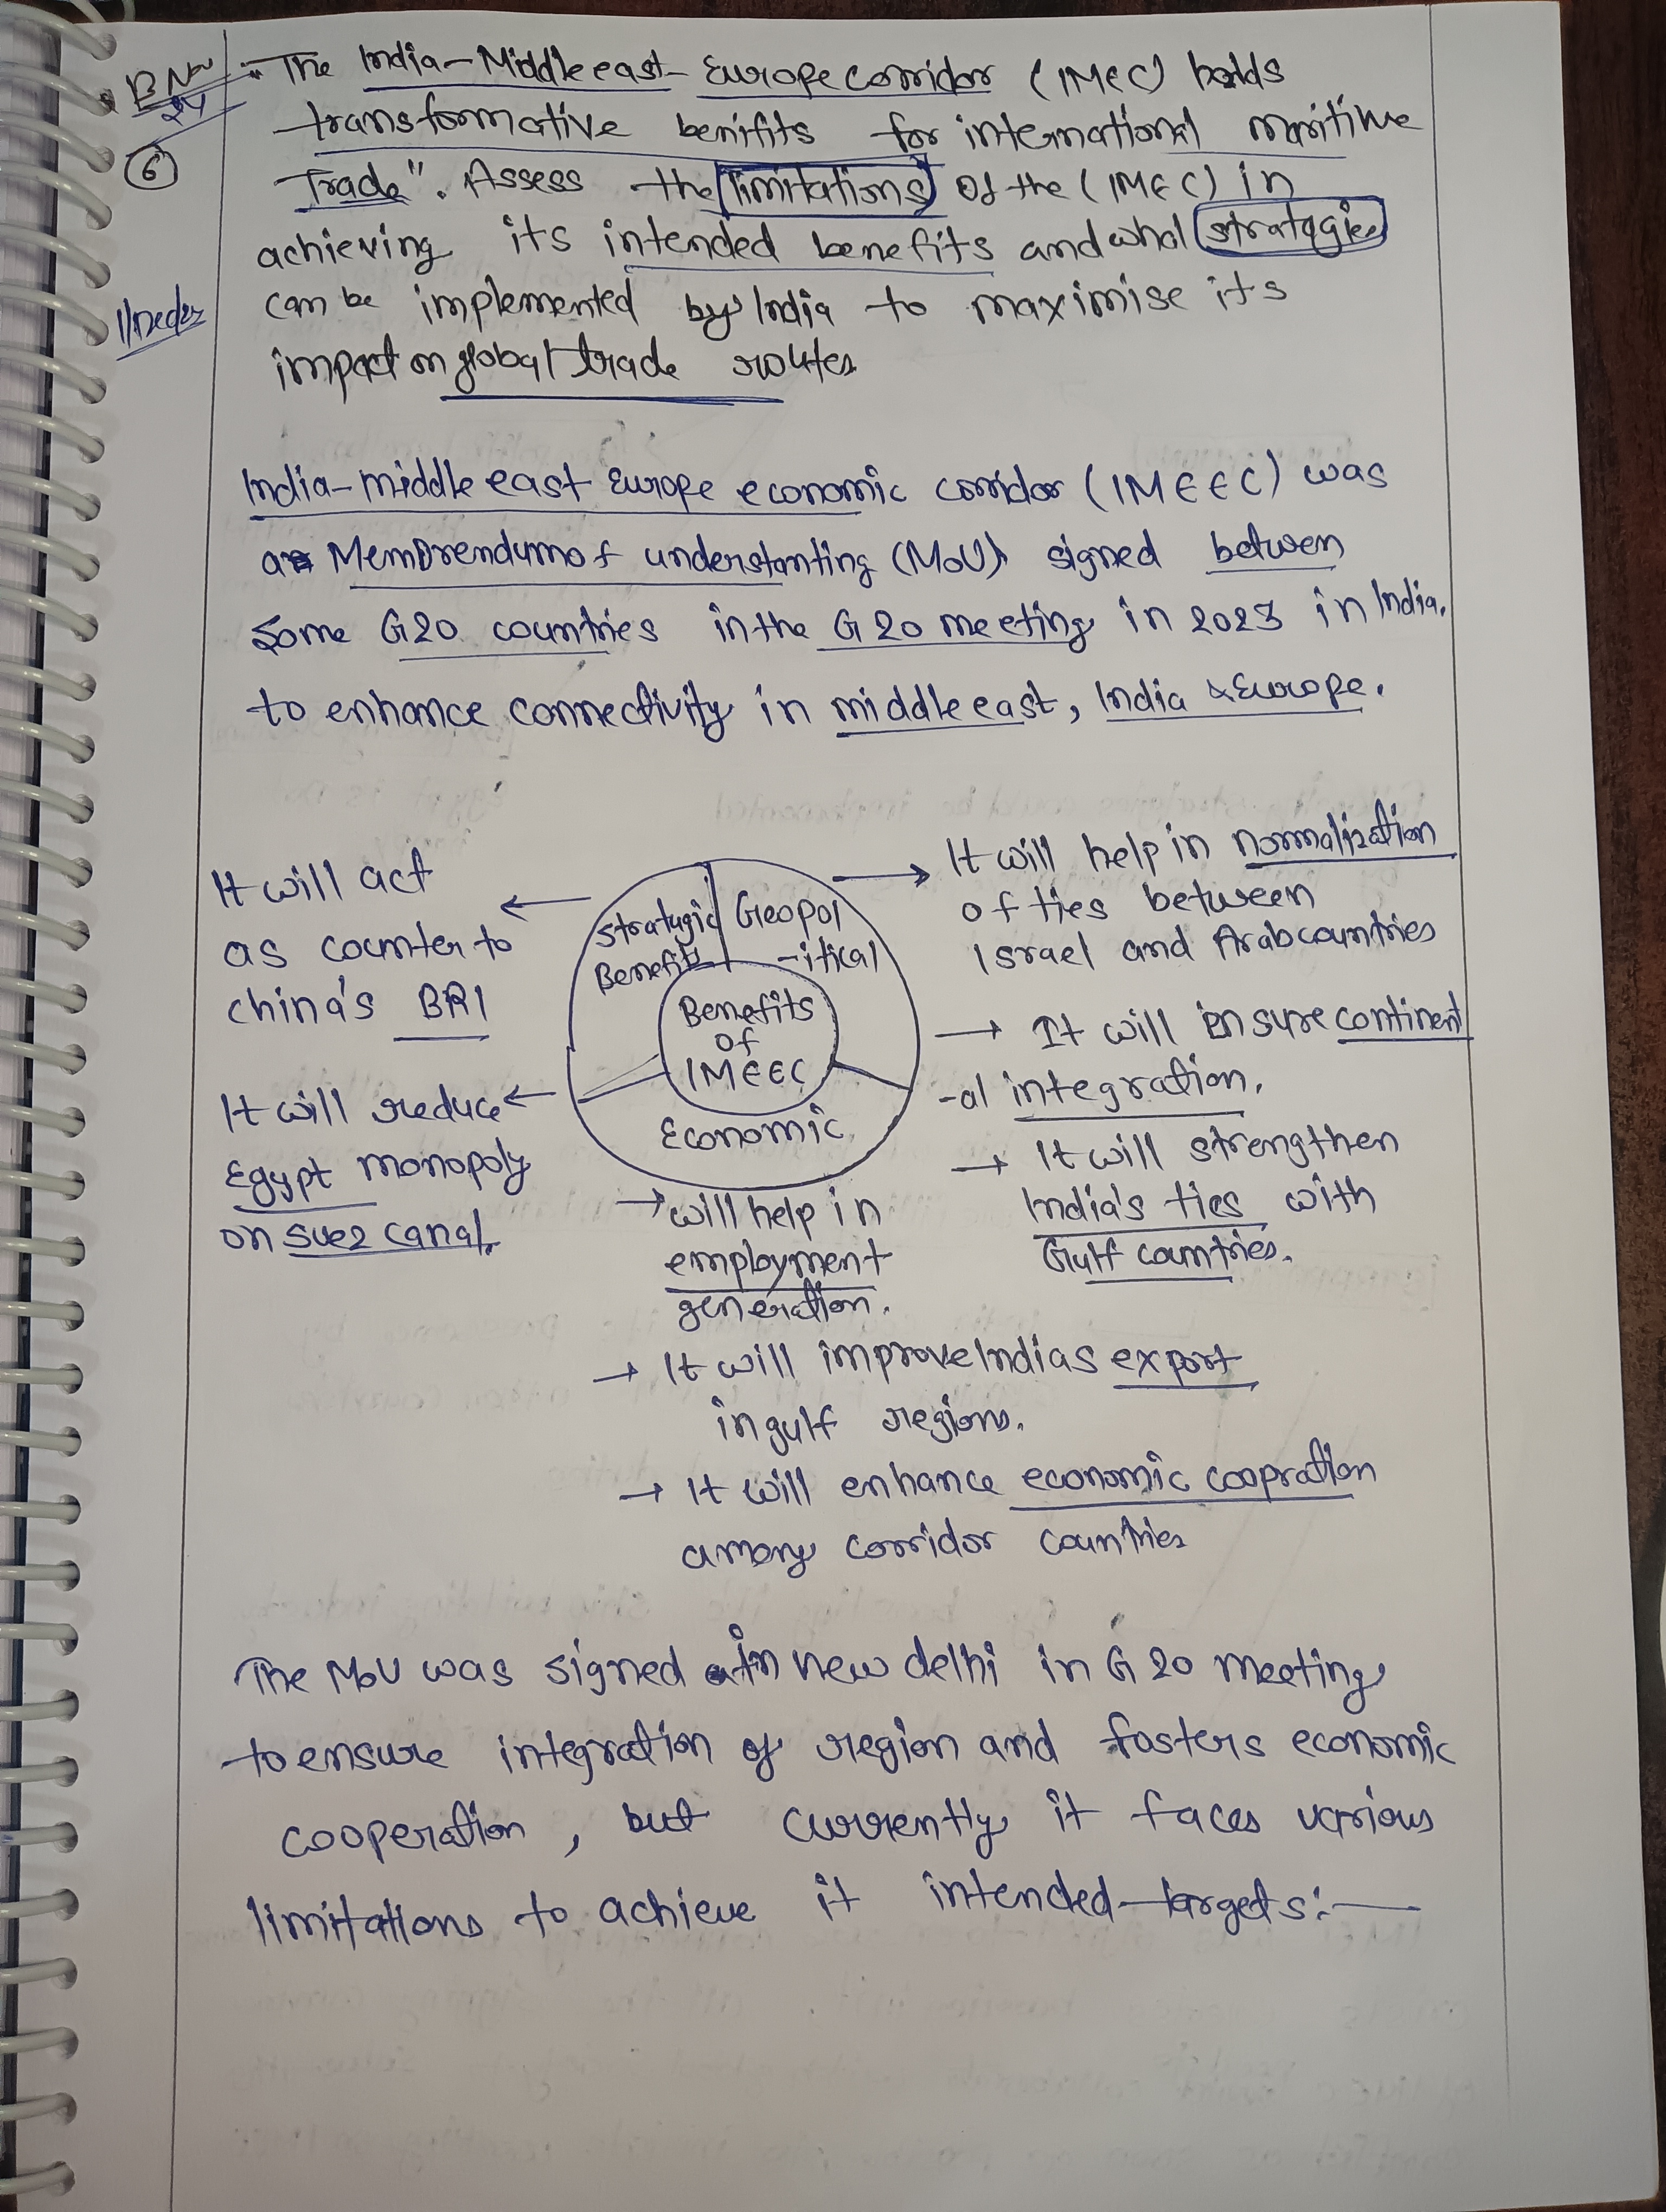 13 Nov
24
6
"The India-Middle east-Europe corridor (IMEC) holds
transformative benifits for international maritime
Trade". Assess the limitations of the (IMEC) in
achieving its intended benefits and what strategies
can be implemented by India to maximise its
impact on global trade routes
India-middle east Europe economic corridor (IMEEC) was
a Memorendum of understanting (MoU) signed betwen
some G20 countries in the G20 meeting in 2023 in India.
to enhance connectivity in middle east, India & Europe.
It will act
as counter to
china's BRI
It will reduce
Egypt monopoly
on suez canal.
Strategic
Benefit
Geopol
-itical
Benefits
of
IMEEC
Economic
→ It will help in normalization
of ties between
Israel and Arab countries
→ It will ensure continent
-al integration.
→ It will strengthen
India's ties with
Gulf countries.
→ will help in
employment
generation.
→ It will improve Indias export
in gulf regions.
→ It will enhance economic coopration
among corridor countries
The MoU was signed in new delhi in G20 meeting
to ensure integration of region and fosters economic
cooperation, but currently it faces various
limitations to achieve it intended targets:-